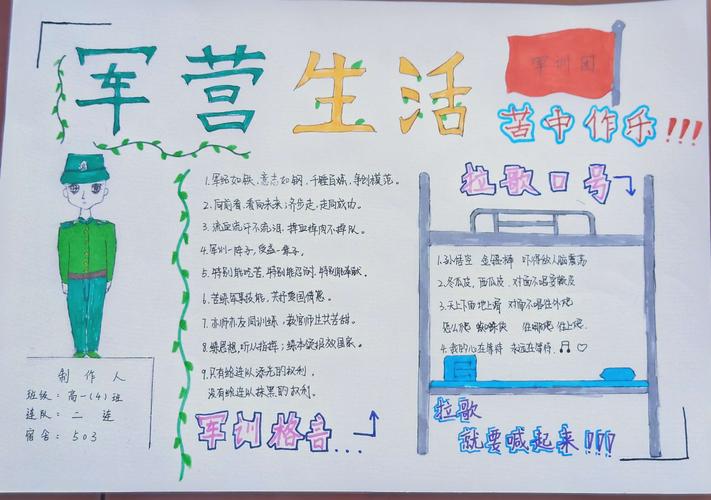 军营生活
军训团
苦中作乐!!!
1.军纪如铁,意志如钢,千锤百炼,争创模范。
2.向前看,看向未来;齐步走,走向成功。
3.流血流汗不流泪,掉皮掉肉不掉队。
4.军训一阵子,受益一辈子。
5.特别能吃苦,特别能忍耐,特别能奉献。
6.苦练军事技能,共抒爱国情怀。
7.亦师亦友同训练,教官师生共苦甜。
8.练思想,听从指挥;练本领报效国家。
9.只有给连队添光的权利,
没有给连队抹黑的权利。
军训格言...
拉歌口号
1.孙悟空 金箍棒 吓得敌人脑震荡
2.冬瓜皮,西瓜皮,对面不唱耍赖皮
3.天上下雨地上滑 对面不唱往外爬
怎么爬 蜘蛛侠 往哪爬 往上爬
4.我的心在等待 永远在等待.
拉歌
就要喊起来!!!
制作人
班级:高一(4)班
连队:二连
宿舍:503